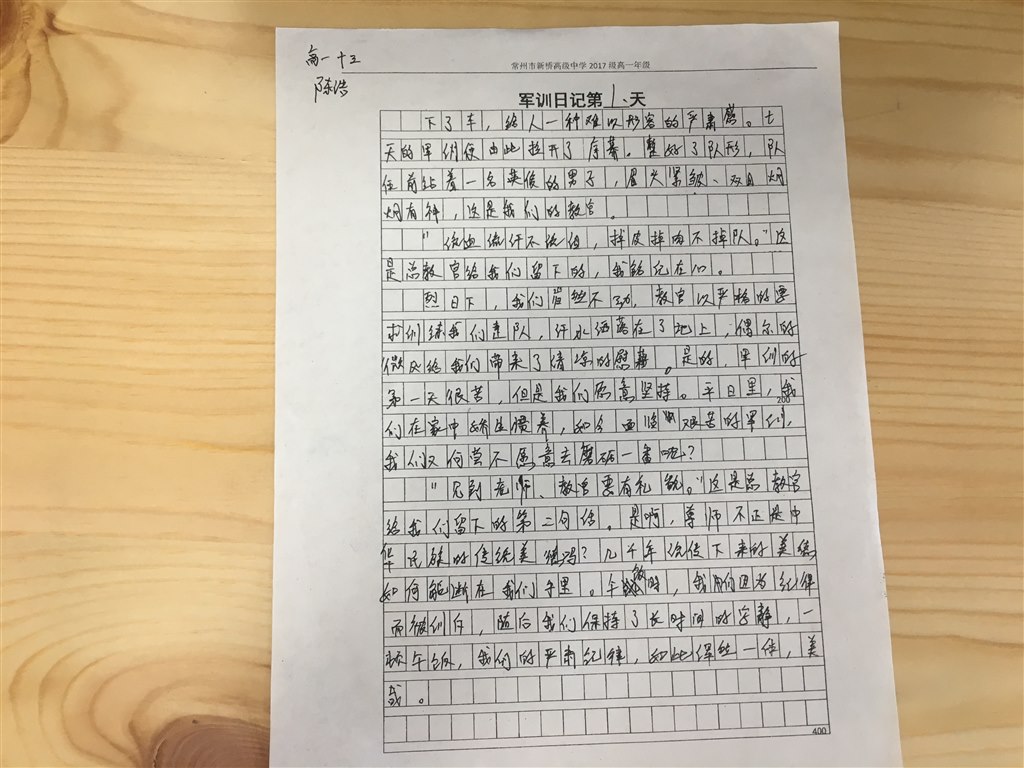 高一十三
陈浩
常州市新桥高级中学2017级高一年级
军训日记第1天
下了车，给人一种难以形容的严肃感。七
天的军训便由此拉开了序幕。整好了队形，队
伍前站着一名英俊的男子，眉头紧皱、双目炯
炯有神，这是我们的教官。
“流血流汗不流泪，掉皮掉肉不掉队。”这
是总教官给我们留下的，我铭记在心。
烈日下，我们丝不动，教官以严格的要
求训练我们走队，汗水洒落在了地上，偶尔的
微风给我们带来了清凉的慰藉。是的，军训的
第一天很苦，但是我们愿意坚持。平日里，我
200
们在家中娇生惯养，如今面临艰苦的军训，
我们又何尝不愿意去磨砺一番呢？
“见到老师、教官要有礼貌。”这是总教官
给我们留下的第二句话。是啊，尊师不正是中
华民族的传统美德吗？几千年流传下来的美德
如何能断在我们手里。午饭时，我们因为纪律
而被训斥，随后我们保持了长时间的安静，一
顿午饭，我们的严肃纪律，如此浑然一体，美
哉。
400